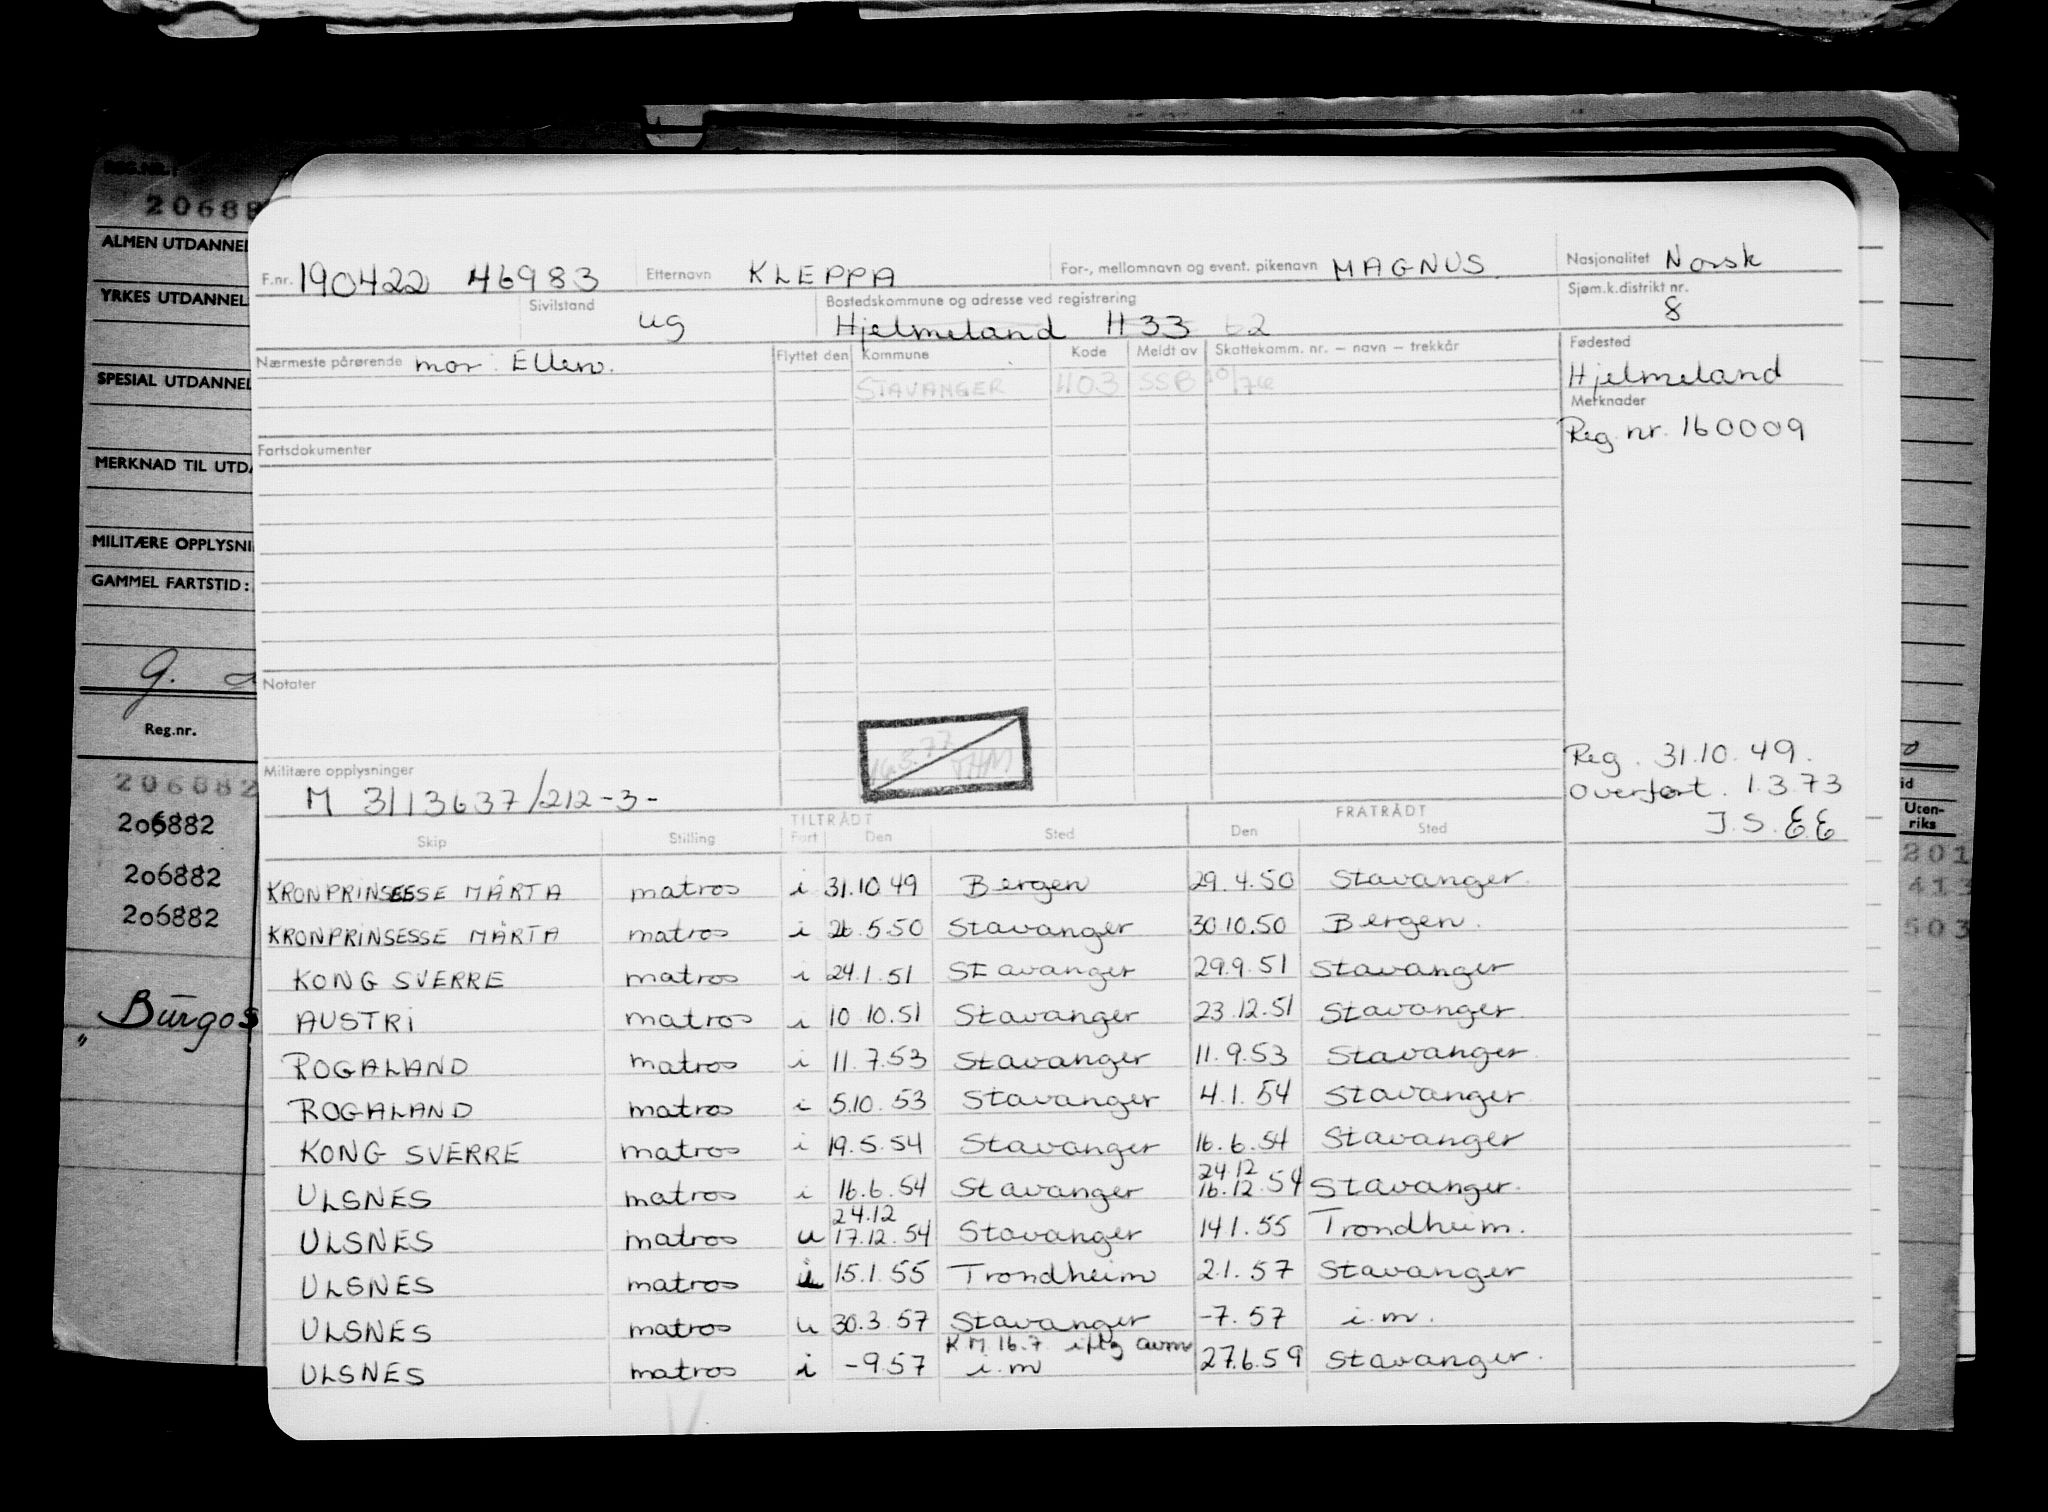 REG.NR.:
20688
ALMEN UTDANNEL
YRKES UTDANNEL
SPESIAL UTDANNEL
MERKNAD TIL UTDA
MILITÆRE OPPLYSNI
GAMMEL FARTSTID:
g.
Reg.nr.
206882
206882
206882
206882
" Burgos
F.nr. 190422 46983 Etternavn KLEPPA For-, mellomnavn og event. pikenavn MAGNUS. Nasjonalitet Norsk
Sivilstand ug Bostedskommune og adresse ved registrering Hjelmeland 1133 62 Sjøm.k.distrikt nr. 8
Nærmeste pårørende mor: Ellen. Flyttet den Kommune Kode Meldt av Skattekomm. nr. – navn – trekkår Fødested
STAVANGER 1103 SSB 10/76 Hjelmeland
Merknader
Reg. nr. 160009
Fartsdokumenter
Notater
16.3.77 THM
Reg. 31.10.49.
Overført. 1.3.73
J.S. EE
Militære opplysninger
M 3113637/212-3-
TILTRÅDT FRATRÅDT
Skip Stilling Fart Den Sted Den Sted
KRONPRINSESSE MÄRTA matros i 31.10 49 Bergen 29.4.50 Stavanger.
KRONPRINSESSE MÄRTA matros i 26.5.50 Stavanger 30.10.50 Bergen.
KONG SVERRE matros i 24.1.51 Stavanger 29.9.51 Stavanger
AUSTRI matros i 10 10.51 Stavanger 23.12.51 Stavanger.
ROGALAND matros i 11.7.53 Stavanger 11.9.53 Stavanger
ROGALAND matros i 5.10.53 Stavanger 4.1.54 Stavanger
KONG SVERRE matros i 19.5.54 Stavanger 16.6.54 Stavanger
24.12
ULSNES matros i 16.6.54 Stavanger 16.12.54 Stavanger.
24.12
ULSNES matros u 17.12.54 Stavanger 14 1.55 Trondheim.
ULSNES matros i 15.1.55 Trondheim 2.1.57 Stavanger
ULSNES matros u 30.3.57 Stavanger -7.57 i.m.
K M 16.7 iflg avm
ULSNES matros i -9.57 i.m 27.6.59 Stavanger.
id
Uten-
riks
201
413
503